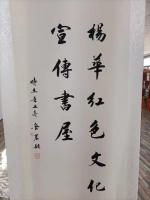 楊華紅色文化
宣傳書屋